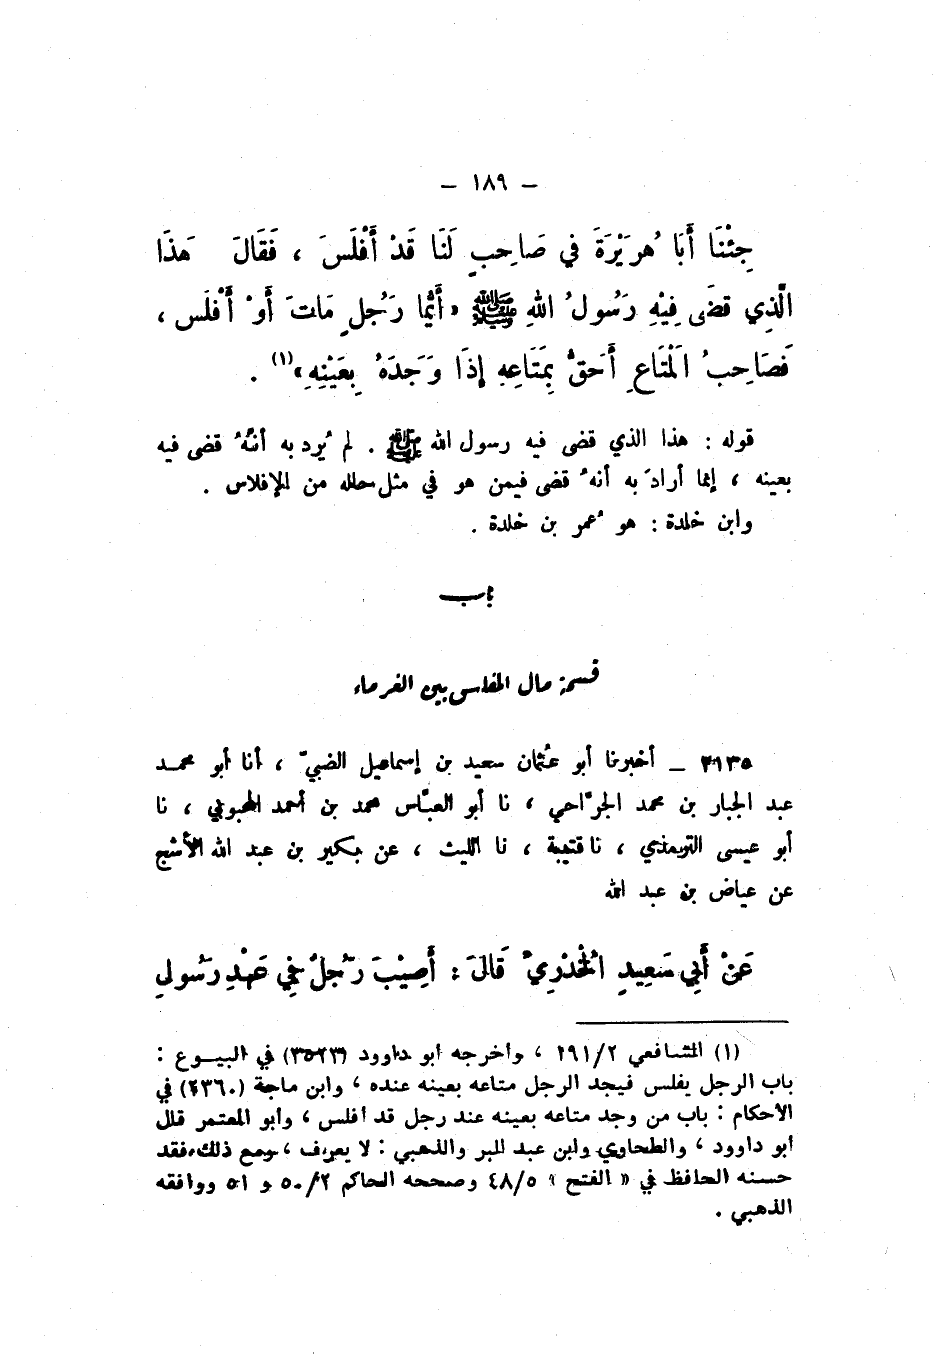 — ١٨٩ —
جِئْنَا أَبَا هُرَيْرَةَ فِي صَاحِبٍ لَنَا قَدْ أَفْلَسَ ، فَقَالَ هَذَا
الَّذِي قَضَى فِيْهِ رَسُولُ اللهِ ﷺ « أَيُّمَا رَجُلٍ مَاتَ أَوْ أَفْلَسَ ،
فَصَاحِبُ الْمَتَاعِ أَحَقُّ بِمَتَاعِهِ إِذَا وَجَدَهُ بِعَيْنِهِ »(١) .
قوله : هذا الذي قضى فيه رسول الله ﷺ . لم يُرد به أنهُ قضى فيه
بعينه ، إنما أرادَ به أنهُ قضى فيمن هو في مثل حاله من الإفلاس .
وابن خلدة : هو عُمر بن خلدة .
باب
قسمة مال المفلس بين الغرماء
٢١٣٥ — أخبرنا أبو عُثمان سعيد بن إسماعيل الضبيّ ، أنا أبو محمد
عبد الجبار بن محمد الجرّاحي ، نا أبو العبّاس محمد بن أحمد المحبوبي ، نا
أبو عيسى الترمذي ، نا قتيبة ، نا الليث ، عن بكير بن عبد الله الأشج
عن عياض بن عبد الله
عَنْ أَبِي سَعِيدٍ الْخُدْرِيِّ قَالَ : أُصِيْبَ رَجُلٌ فِي عَهْدِ رَسُولِ
(١) الشافعي ١٩١/٢ ، وأخرجه أبو داوود (٣٥٢٣) في البيوع :
باب الرجل يفلس فيجد الرجل متاعه بعينه عنده ، وابن ماجة (٢٣٦٠) في
الأحكام : باب من وجد متاعه بعينه عند رجل قد أفلس ، وأبو المعتمر قال
أبو داوود ، والطحاوي وابن عبد البر والذهبي : لا يعرف ، ومع ذلك ، فقد
حسنه الحافظ في « الفتح » ٤٨/٥ وصححه الحاكم ٥٠/٢ و ٥١ ووافقه
الذهبي .